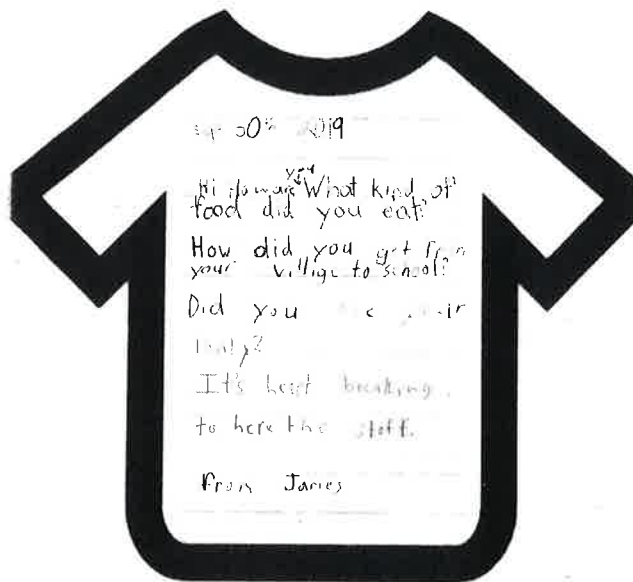 30th 2019
Hi how are you What kind of
food did you eat?
How did you get from
your villige to school?
Did you
It's heart breaking
to here the stoff.
From James